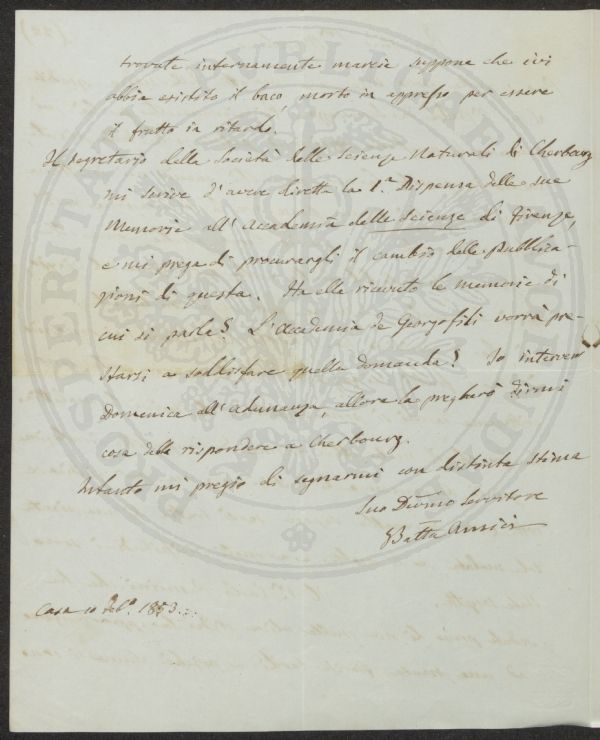 trovate internamente marcie suppone che ivi
abbia esistito il baco, morto in appresso per essere
il frutto in ritardo.
Il segretario della Società delle Scienze Naturali di Cherbourg
mi scrive d'aver diretta la 1.a Dispensa delle sue
Memorie all'Accademia delle Scienze di Firenze,
e mi prega di procurargli il cambio delle pubblica-
zioni di questa. Ha ella ricevuto le memorie di
cui si parla? L'Accademia de Georgofili vorrà pre-
starsi a soddisfare quella domanda? Io interverrò
Domenica all'adunanza, allora la pregherò dirmi
cosa debbo rispondere a Cherbourg.
Intanto mi pregio di segnarmi con distinta stima
Suo Devmo Servitore
GBatta Amici
Casa 10 Feb.o 1853.
PROSPERITATI PUBLICAE